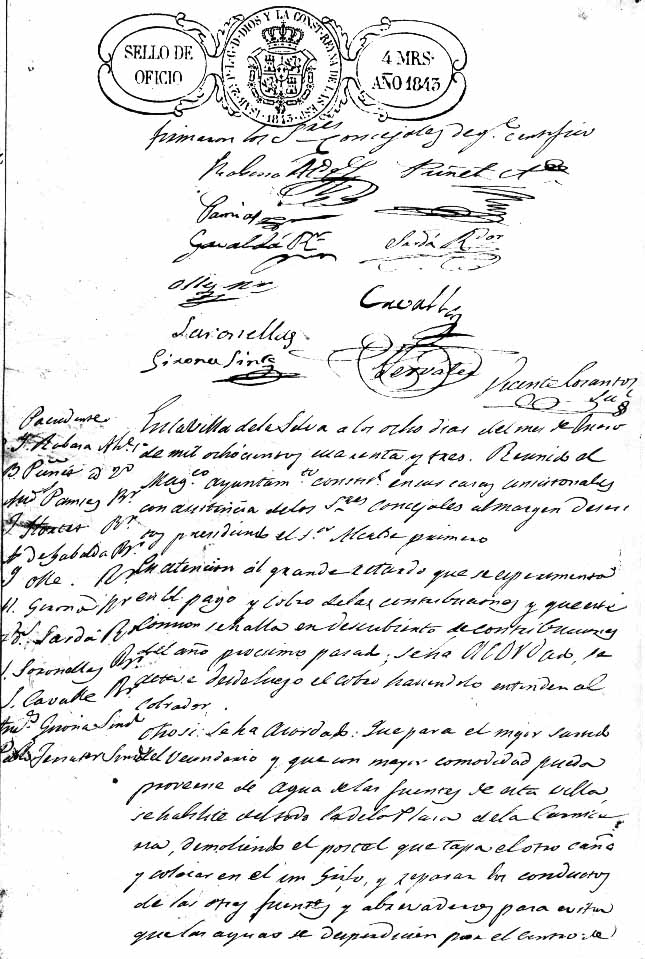 SELLO DE
OFICIO
YSAB. 2ª P. L. G. D. DIOS Y LA CONST. REYNA DE LAS ESP.
1843
4 MRS.
AÑO 1843
firmaron los Sres Concejales de qe certifico
Robusa
Puñet
Pamies
Gavaldá Rr
Sardá Rdor
Olle Rr
Cavallé
Soronellas
Girona Sindo
Ferrater
Vicente Cosantos
Sre
Presidente
Robasa Ale 1º
B. Puñet id 2º
Anto Pamies Rr
Ferrater Rr
de Gabalda Rr
J. Olle. Rr
Girona Rr
Sardá Rr
J. Soronellas Rr
S. Cavalle Rr
Girona Sind
Pablo Ferrater Sindo
En la Villa de la Selva a los ocho dias del mes de Enero
de mil ochocientos cuarenta y tres. Reunido el
Magco ayuntamto constl en sus casas consistoriales
con asistencia de los Sres concejales al margen descri
tos y presidiendo el Sor Alcalde primero
En atencion al grande retardo que se esperimenta
en el pago y cobro de las contribuciones y que este
comun se halla en descubierto de contribuciones
del año procsimo pasado, se ha acordado, se
active desde luego el cobro haciendolo entender al
cobrador.
Otrosi: se ha acordado: Que para el mejor surtido
del vecindario y que con mayor comodidad pueda
proveerse de Agua de las fuentes de esta villa
se habilite del todo la de la Plaza de la Carnice
ria, demoliendo el postel que tapa el otro caño
y colocar en el un Grifo, y reparar los conductos
de las otras fuentes y abrevaderos para evitar
que las aguas se desperdicien por el centro de